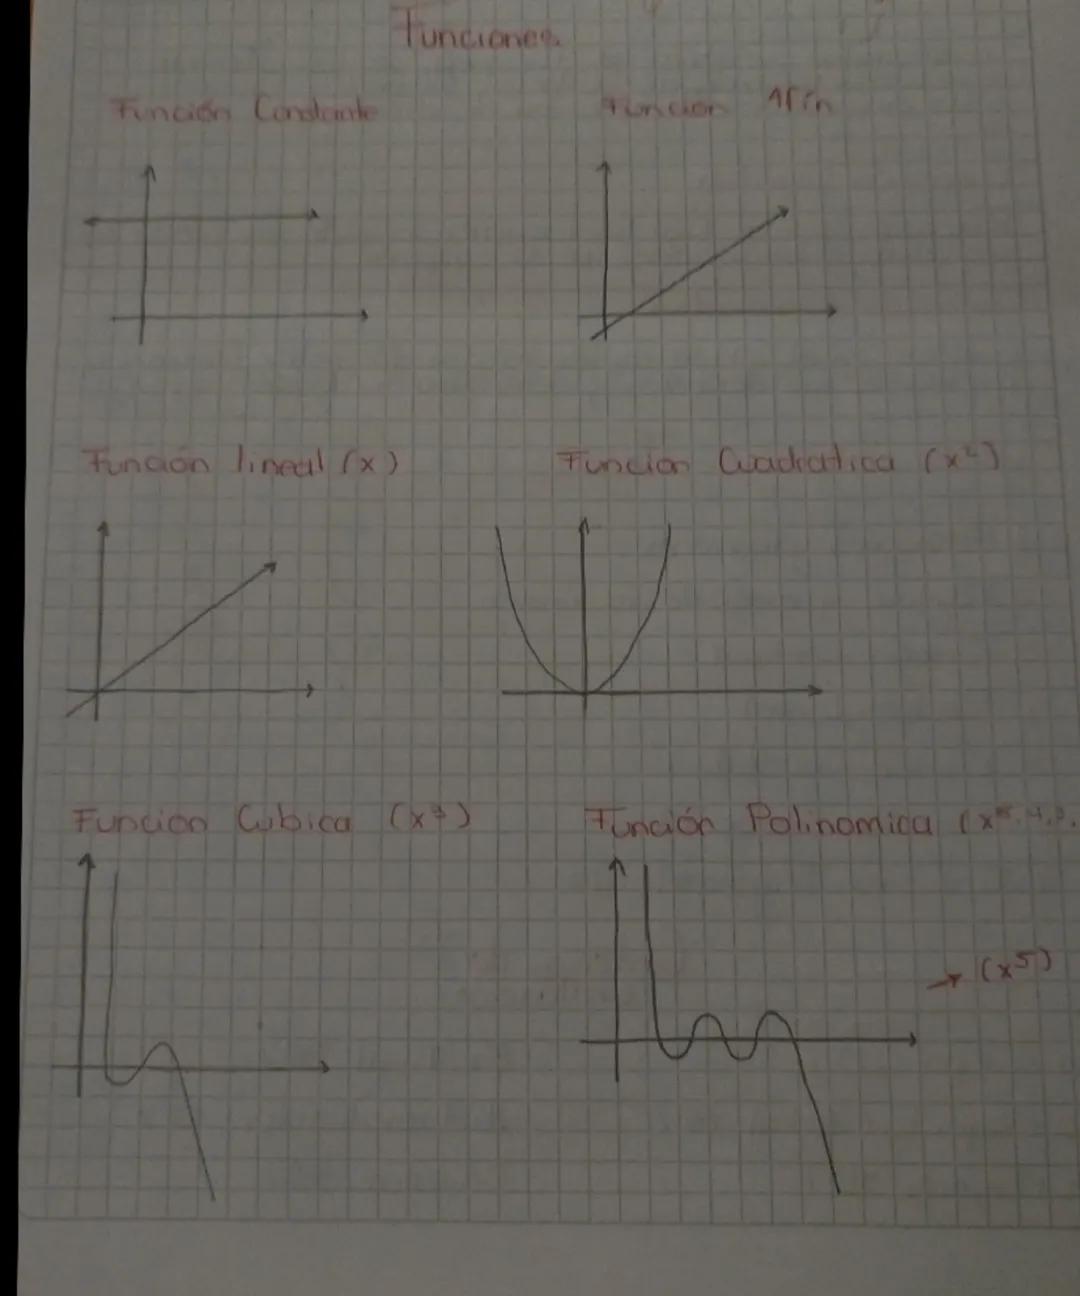 Funciones
Función Constante
Funcion Afín
Función lineal (x)
Funcion Cuadratica (x²)
Funcion Cubica (x³)
Función Polinomica (x⁵,⁴,³.
→ (x⁵)